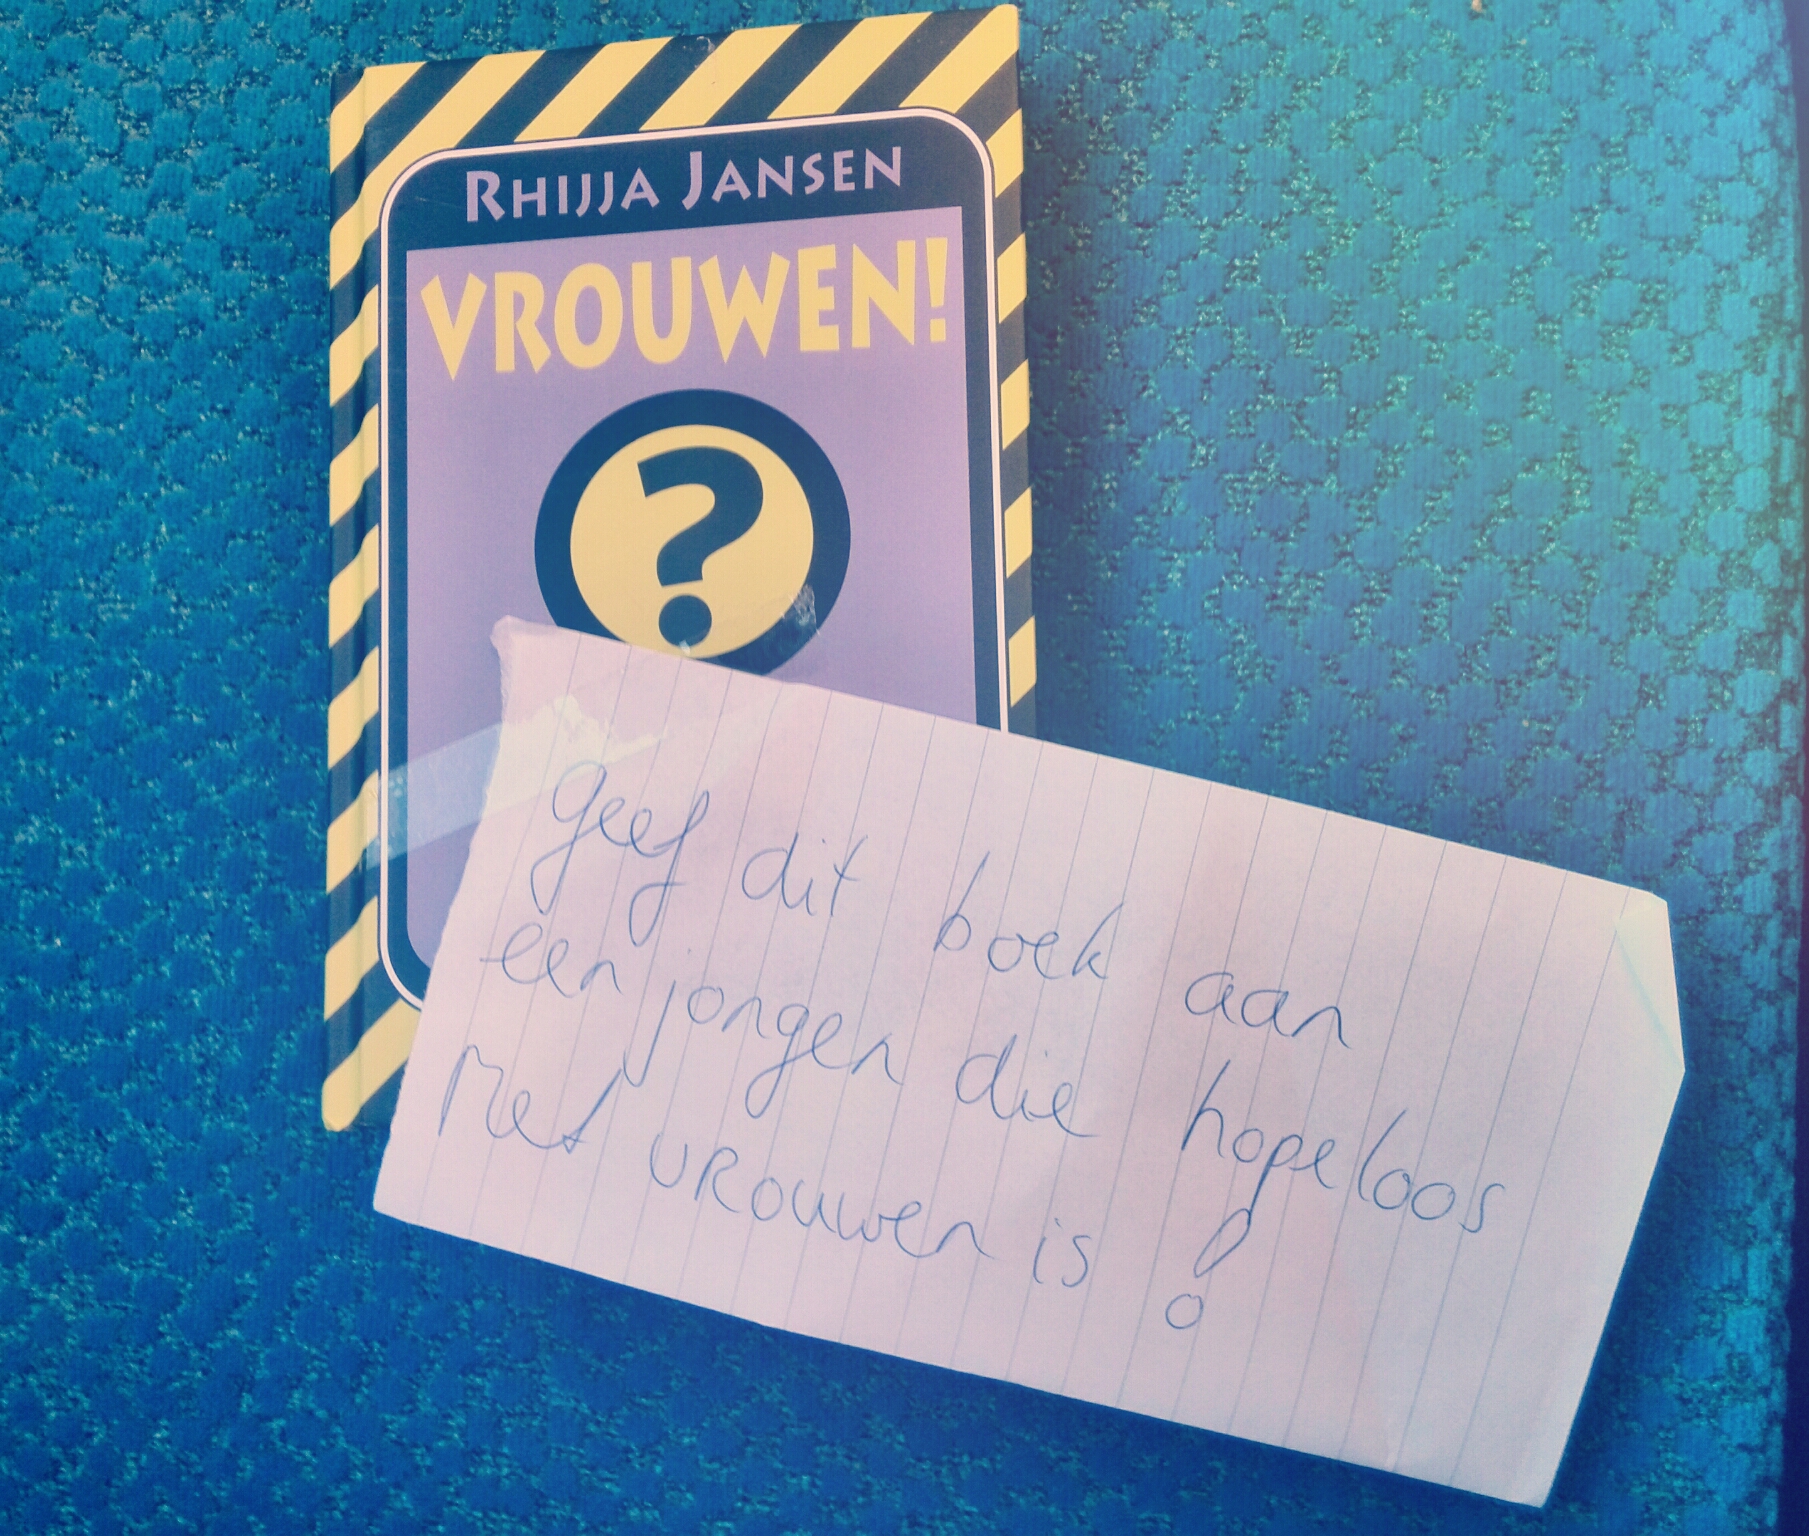 RHIJJA JANSEN
VROUWEN!
?
geef dit boek aan
een jongen die hopeloos
Met vrouwen is !